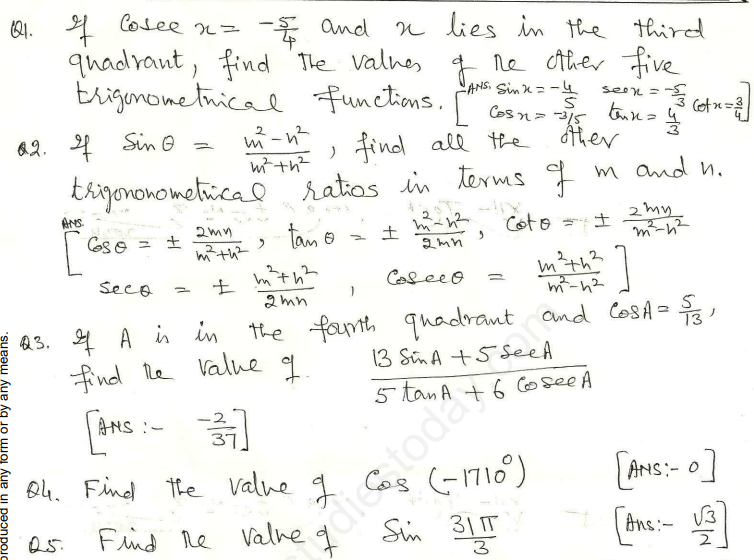 Q1. If Cosec x = -5/4 and x lies in the third
quadrant, find the values of the other five
trigonometrical functions. [ANS. Sin x = -4/5 sec x = -5/3 Cot x = 3/4]
Cos x = -3/5 tan x = 4/3
Q2. If Sin θ = m²-n²/m²+n², find all the other
trigononometrical ratios in terms of m and n.
ANS. [Cos θ = ± 2mn/m²+n², tan θ = ± m²-n²/2mn, Cot θ = ± 2mn/m²-n²
sec θ = ± m²+n²/2mn, Cosec θ = m²+n²/m²-n²]
Q3. If A is in the fourth quadrant and Cos A = 5/13,
find the value of 13 Sin A + 5 Sec A / 5 tan A + 6 Cosec A
[ANS :- -2/37]
Q4. Find the value of Cos (-1710°) [ANS:- 0]
Q5. Find the value of Sin 31π/3 [Ans:- √3/2]
produced in any form or by any means.
studiestoday.com